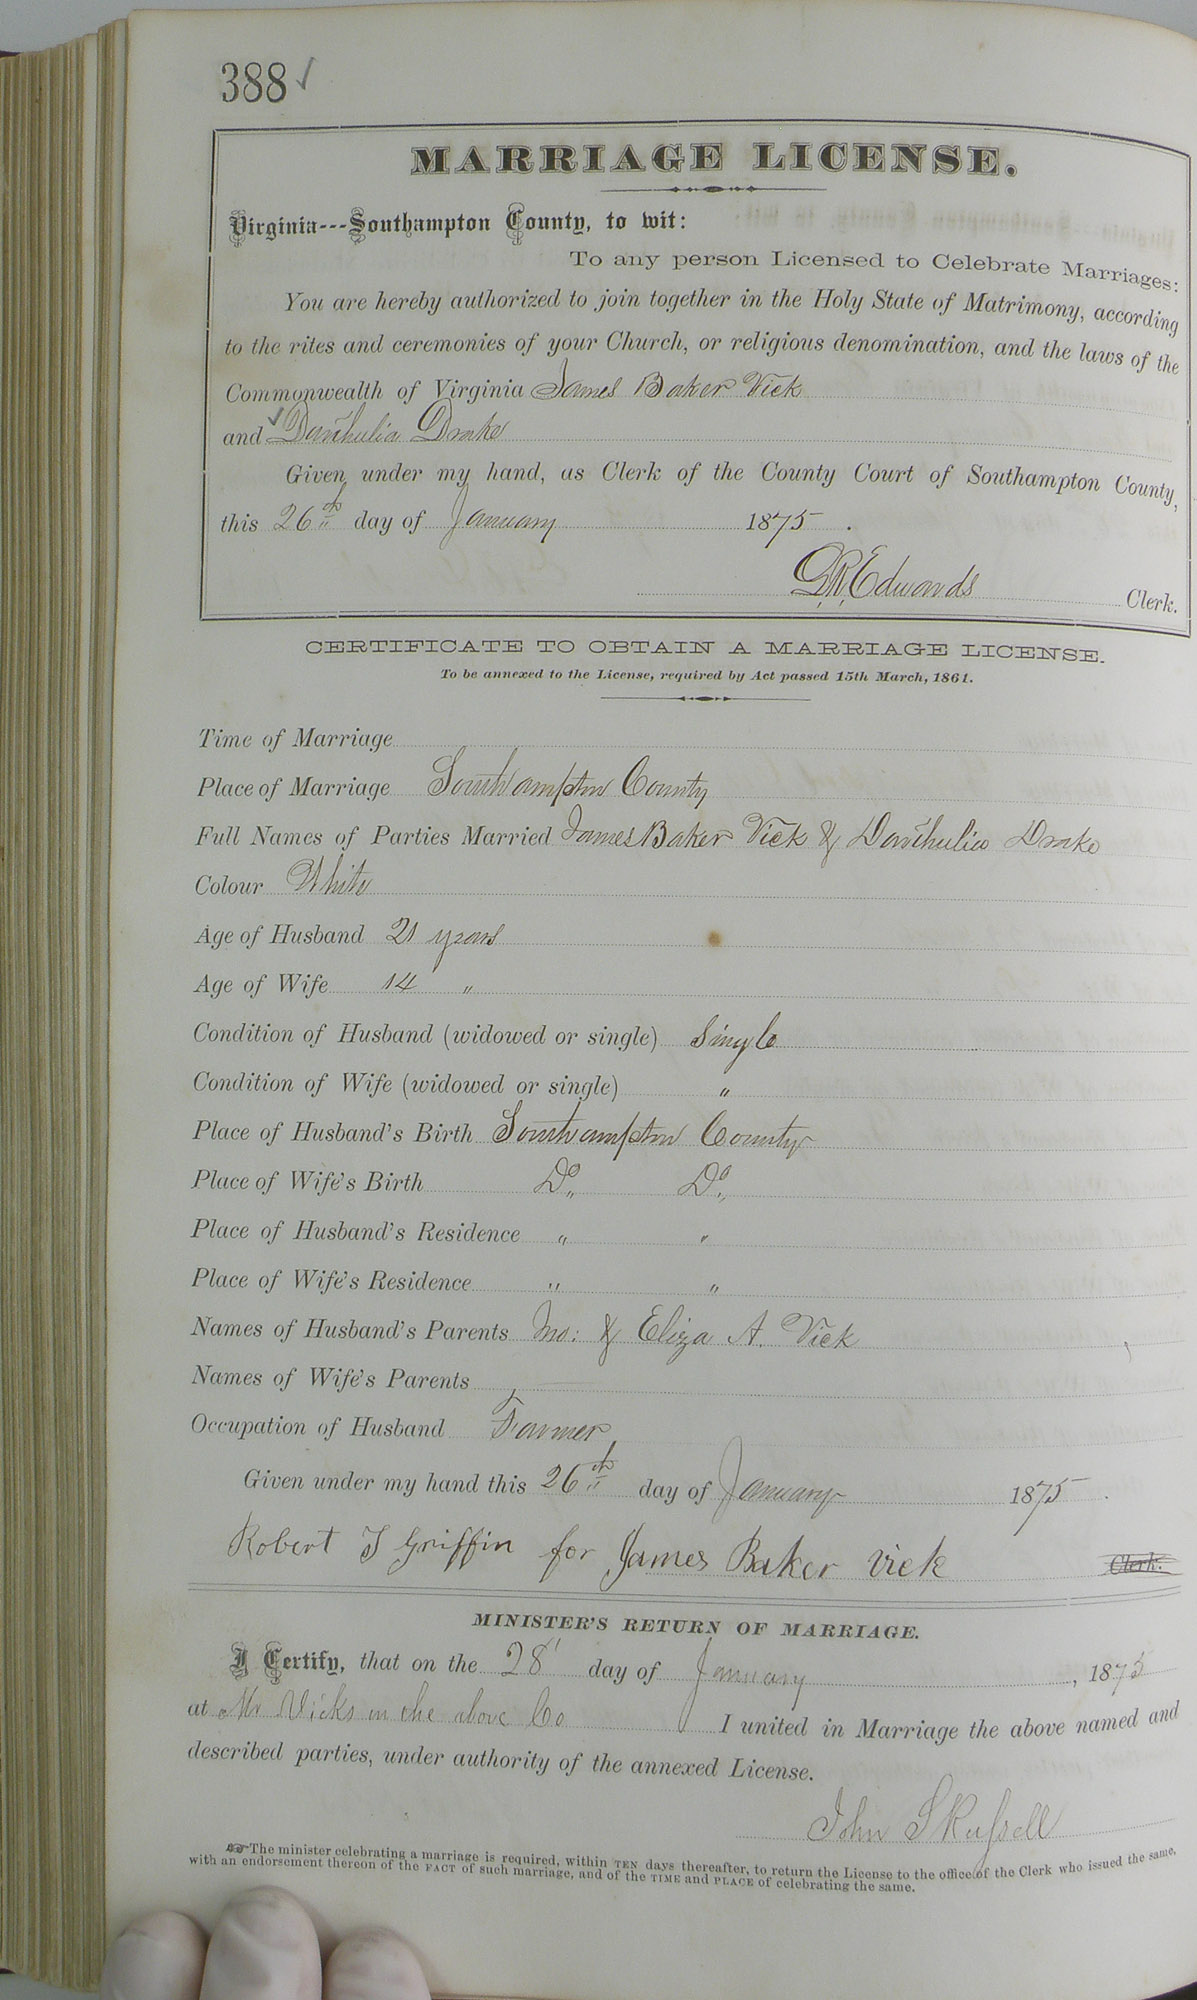 388 ✓
MARRIAGE LICENSE.
Virginia---Southampton County, to wit:
To any person Licensed to Celebrate Marriages:
You are hereby authorized to join together in the Holy State of Matrimony, according
to the rites and ceremonies of your Church, or religious denomination, and the laws of the
Commonwealth of Virginia James Baker Vick
and Drake
Given under my hand, as Clerk of the County Court of Southampton County,
this 26th day of January 1875.
Edwards Clerk.
CERTIFICATE TO OBTAIN A MARRIAGE LICENSE.
To be annexed to the License, required by Act passed 15th March, 1861.
Time of Marriage
Place of Marriage Southampton County
Full Names of Parties Married James Baker Vick & Drake
Colour White
Age of Husband 21 years
Age of Wife 14 "
Condition of Husband (widowed or single) Single
Condition of Wife (widowed or single) "
Place of Husband's Birth Southampton County
Place of Wife's Birth Do. Do.
Place of Husband's Residence " "
Place of Wife's Residence " "
Names of Husband's Parents Jno: & Eliza A. Vick
Names of Wife's Parents
Occupation of Husband Farmer
Given under my hand this 26th day of January 1875.
Robert T Griffin for James Baker Vick Clerk.
MINISTER'S RETURN OF MARRIAGE.
I Certify, that on the 28' day of January, 1875
at Mr Vicks in the above Co I united in Marriage the above named and
described parties, under authority of the annexed License.
John S Russell
☞ The minister celebrating a marriage is required, within TEN days thereafter, to return the License to the office of the Clerk who issued the same,
with an endorsement thereon of the FACT of such marriage, and of the TIME and PLACE of celebrating the same.